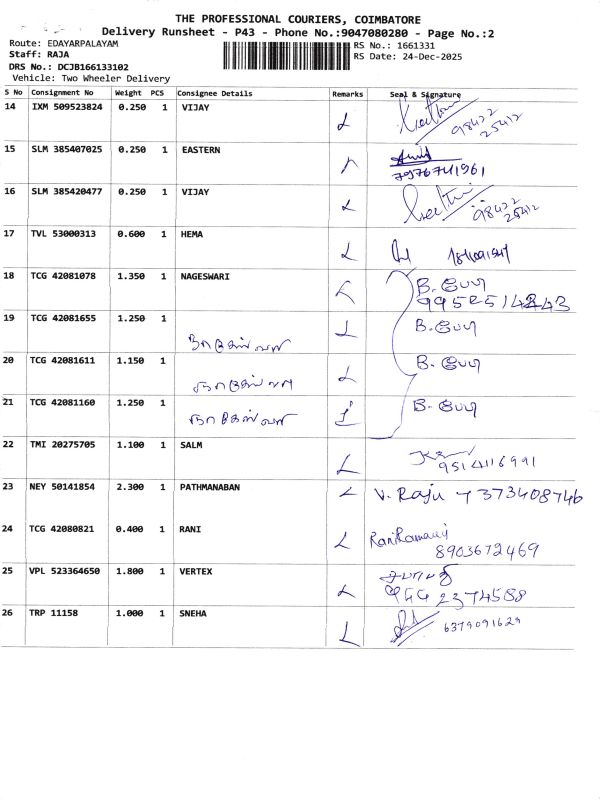 THE PROFESSIONAL COURIERS, COIMBATORE
Delivery Runsheet - P43 - Phone No.:9047080280 - Page No.:2
Route: EDAYARPALAYAM RS No.: 1661331
Staff: RAJA RS Date: 24-Dec-2025
DRS No.: DCJB166133102
Vehicle: Two Wheeler Delivery
S No Consignment No Weight PCS Consignee Details Remarks Seal & Signature
14 IXM 509523824 0.250 1 VIJAY
98422
25412
15 SLM 385407025 0.250 1 EASTERN
7976741961
16 SLM 385420477 0.250 1 VIJAY
98422
25412
17 TVL 53000313 0.600 1 HEMA
18 TCG 42081078 1.350 1 NAGESWARI B. பேபி
19 TCG 42081655 1.250 1 B. பேபி
20 TCG 42081611 1.150 1 B. பேபி
21 TCG 42081160 1.250 1 B. பேபி
22 TMI 20275705 1.100 1 SALM
9514116991
23 NEY 50141854 2.300 1 PATHMANABAN V. Raju 7373408746
24 TCG 42080821 0.400 1 RANI
8903672469
25 VPL 523364650 1.800 1 VERTEX
26 TRP 11158 1.000 1 SNEHA 6379091629